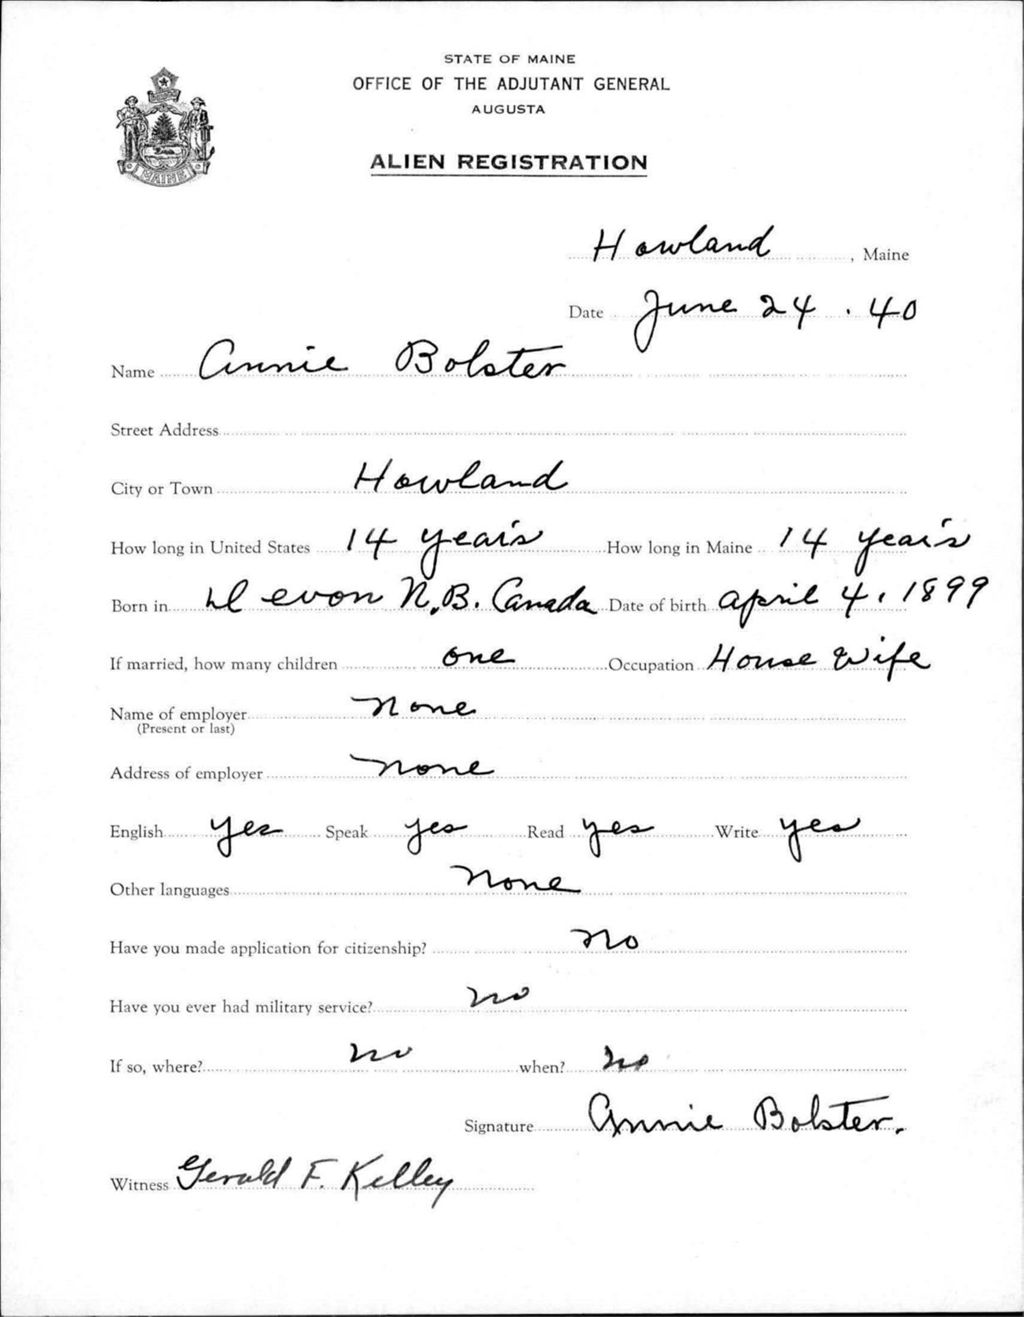 STATE OF MAINE
OFFICE OF THE ADJUTANT GENERAL
AUGUSTA
MAINE
ALIEN REGISTRATION
Howland, Maine
Date June 24. 40
Name Annie Bolster
Street Address
City or Town Howland
How long in United States 14 years How long in Maine 14 years
Born in Devon N.B. Canada Date of birth April 4, 1899
If married, how many children one Occupation House Wife
Name of employer None
(Present or last)
Address of employer None
English yes Speak yes Read yes Write yes
Other languages None
Have you made application for citizenship? No
Have you ever had military service? no
If so, where? no when? no
Signature Annie Bolster.
Witness Gerald F. Kelley